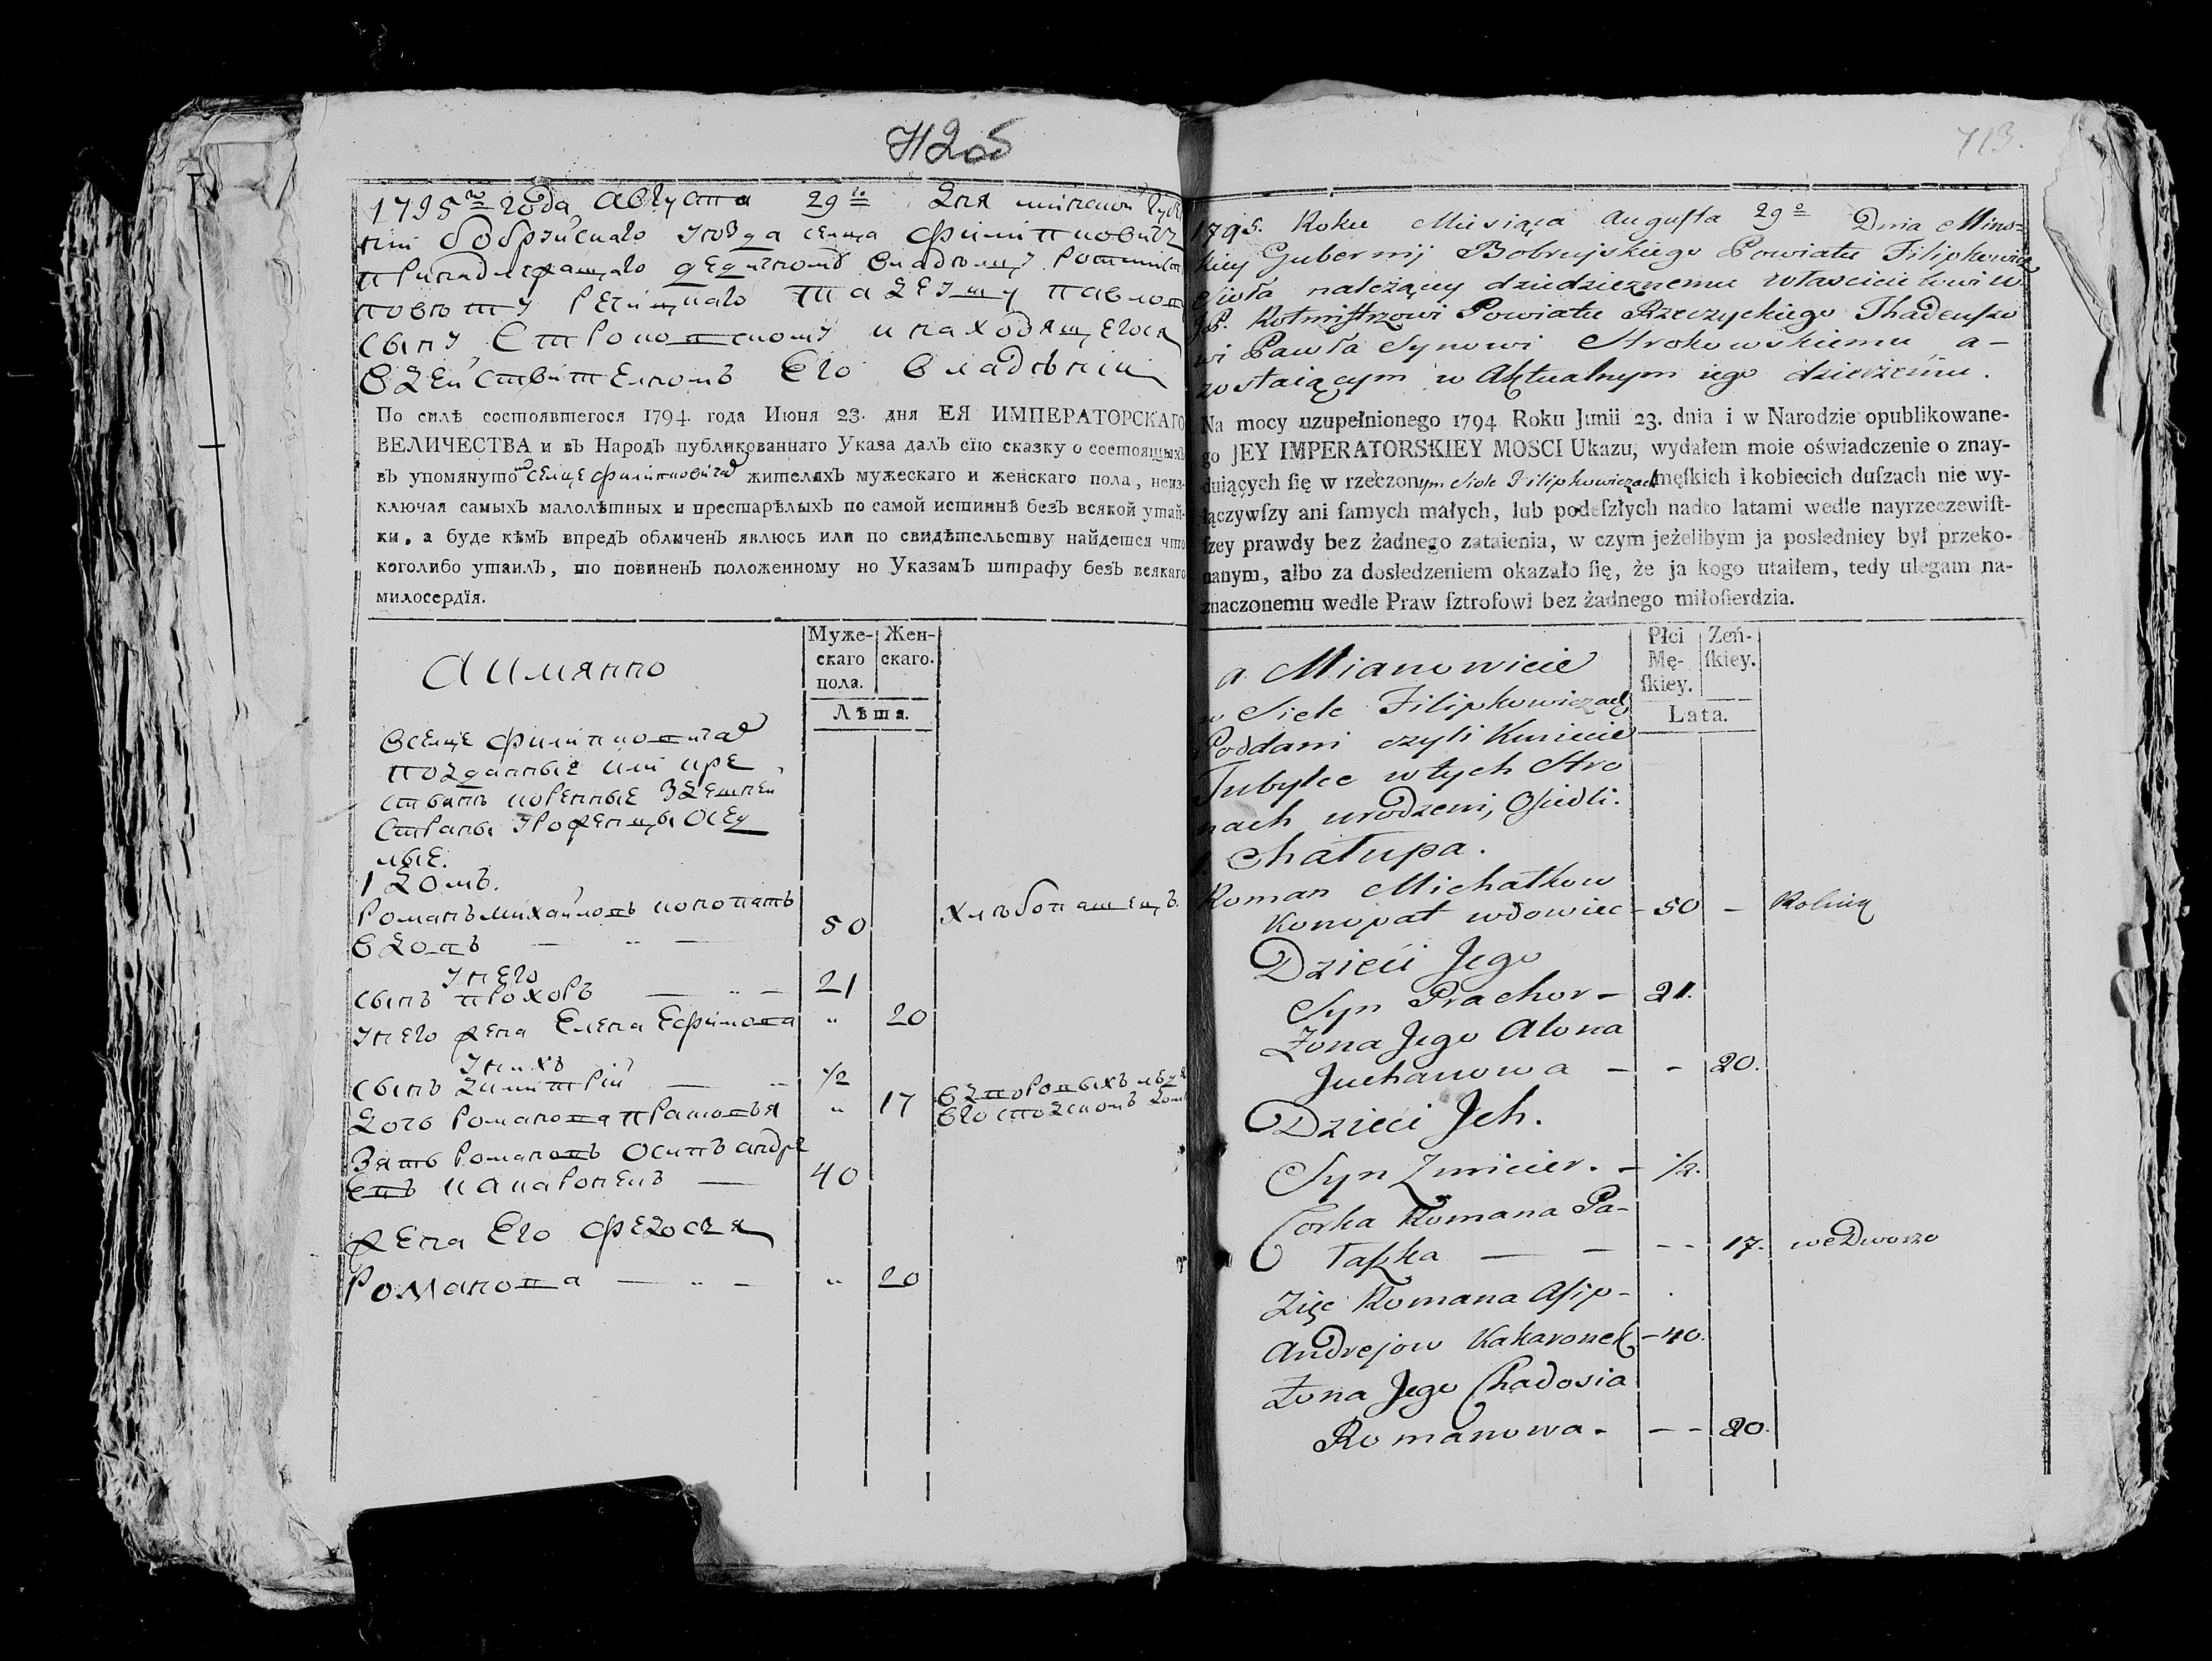 712об
1795го года августа 29го дня минской губер
нии бобруйскаго уезда селца филипковичъ
принадлежащаго дедичному владелцу ротмистру
повету речицкаго тадеушу павлову
сыну Строковскому и находящегося
в действителномъ Его владѣнии
По силѣ состоявшегося 1794. года Июня 23. дня ЕЯ ИМПЕРАТОРСКАГО
ВЕЛИЧЕСТВА и въ Народъ публикованнаго Указа далъ сїю сказку о состоящихъ
въ упомянутомъ селце филипковичахъ жителяхъ мужескаго и женскаго пола, неиз-
ключая самыхъ малолѣтныхъ и престарѣлыхъ по самой истиннѣ безъ всякой утай-
ки, а буде кѣмъ впредъ обличенъ явлюсь или по свидѣтельству найдется что
коголибо утаилъ, то повиненъ положенному по Указамъ штрафу безъ всякаго
милосердїя.
Муже-скаго пола. Жен-скаго.
Лѣта.
А имянно
в селце филипковичах
подданные или кре
стьянъ коренные здешней
страны уроженцы осед
лые.
1 домъ.
Романъ михайловъ конопатъ
вдовъ 50 хлѣбопашецъ.
у него
сынъ прохоръ 21
у него жена Елена Ефимова " 20
у нихъ
сынъ димитрий 1/2
дочь романова прасковья " 17 в дворовых
зять романовъ осипъ андре
евъ какаронекъ 40
жена Его федосья
романова " 20
713.
1795. Roku Miesiąca Augusta 29o Dnia Mins-
kiey Gubernij Bobruyskiego Powiatu Filipkowicz
Sioła należący dziedzicznemu właścicielowi W
JP. Rotmistrzowi Powiatu Rzeczyckiego Thadeuszo
wi Pawła Synowi Strokowskiemu a-
zostaiącym w Aktualnym iego dzierżeniu.
Na mocy uzupełnionego 1794 Roku Junii 23. dnia i w Narodzie opublikowane-
go JEY IMPERATORSKIEY MOSCI Ukazu, wydałem moie oświadczenie o znay-
duiących ſię w rzeczonym Siele Filipkowiczach męſkich i kobiecich duſzach nie wy-
łączywſzy ani ſamych małych, lub podeſzłych nadto latami wedle nayrzeczewiſt-
ſzey prawdy bez żadnego zataienia, w czym jeżelibym ja posledniey był przeko-
nanym, albo za dosledzeniem okazało ſię, że ja kogo utaiłem, tedy ulegam na-
znaczonemu wedle Praw ſztrofowi bez żadnego miłoſierdzia.
Płci Mę-ſkiey. Zeń-ſkiey.
Lata.
a Mianowicie
w Siele Filipkowiczach
Poddani czyli Kmiecie
Tubylce w tych Stro
nach urodzeni, Osiedli.
1 Chałupa.
Roman Michałkow
Konopat wdowiec - 50 - Rolnik
Dzieci Jego
Syn Prachor - 21.
Żona Jego Alona
Juchanowa - - 20.
Dzieci Jch.
Syn Zmicier. - 1/2.
Corka Romana Pa-
raszka - - - - 17. we Dworze
Zięć Romana Asip-
Andrejow Kakaronek - 40.
Żona Jego Chadosia
Romanowa. - - 20.